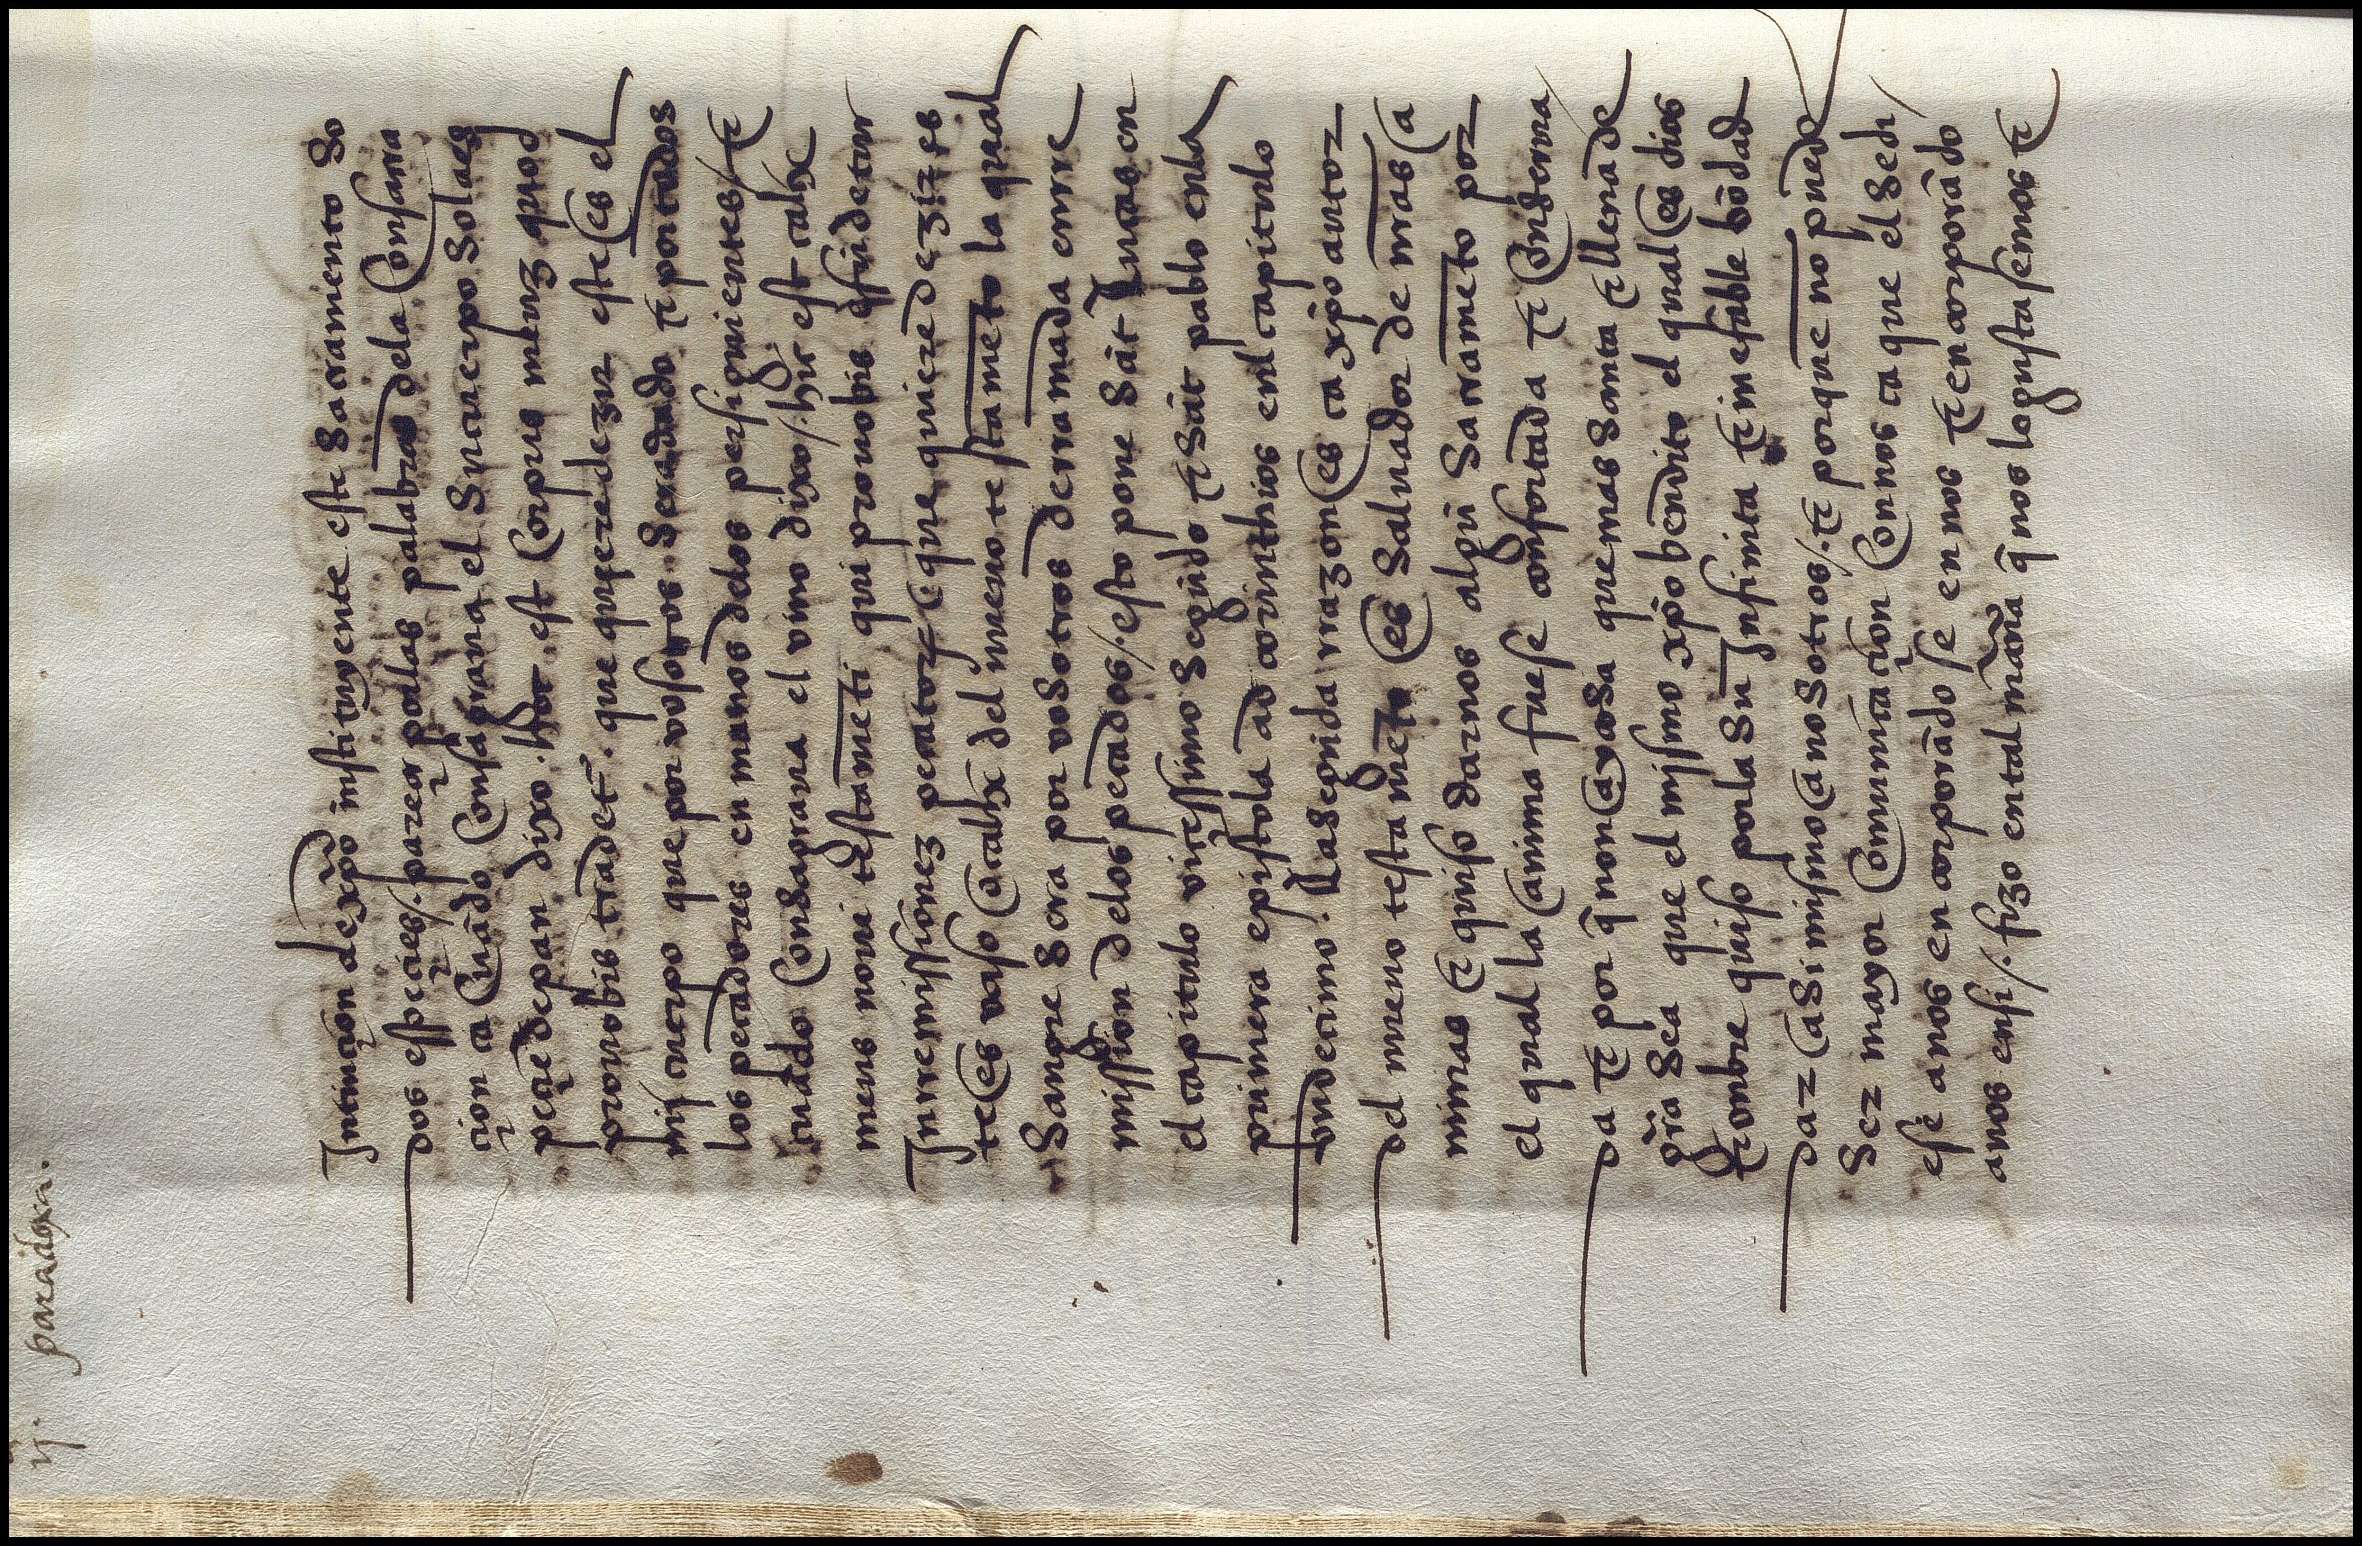 ij. paradoxa.
Intinción de xp̄o instituyente este sacramento so
dos especies /. parece por las palabras dela consacra
ción ca cuādo consagraua el su cuerpo so la es
peçie de pan dixo. hoc est corpus meuz quod
pro uobis tradet̄. que quiere dezir este es el
mi cuerpo que por vosotros sera dado τ por todos
los pecadores en manos delos persiguientes / τ
cuādo consagraua el vino dixo /. hic est calix̄
meus noui testam̄eti qui pro uobis efūdetur
In remissionez pecatorz que quiere dezir es
te es vaso o calix̄ del nueuo testam̄eto la qual
sangre sera por vosotros derramada en rre
missión delos pecados /. esto pone sāt lucas en
el capitulo viçessimo segūdo τ sāt pablo enla
primera epistola ad corinthios enel capitulo
vndecimo. La segunda rrazon es ca xp̄o autor
del nueuo testam̄eto es saluador de nr̄as a
nimas τ quiso darnos algū sacram̄eto por
el qual la anima fuese confortada τ conserua
da τ por q̄ non ay cosa que mas santa τ llena de
gr̄a sea que el mismo xp̄o bēndito el qual es dios
τ ombre quiso por la su Infinita τ inefable bōdad
dar a si mismo a nosotros /. τ porque no puede
ser mayor comunicación con nos ca que el se di
ese a nos encorporādo se en nos τ encorporādo
a nos en si /. fizo en tal man̄a q̄ nos lo gustasemos τ